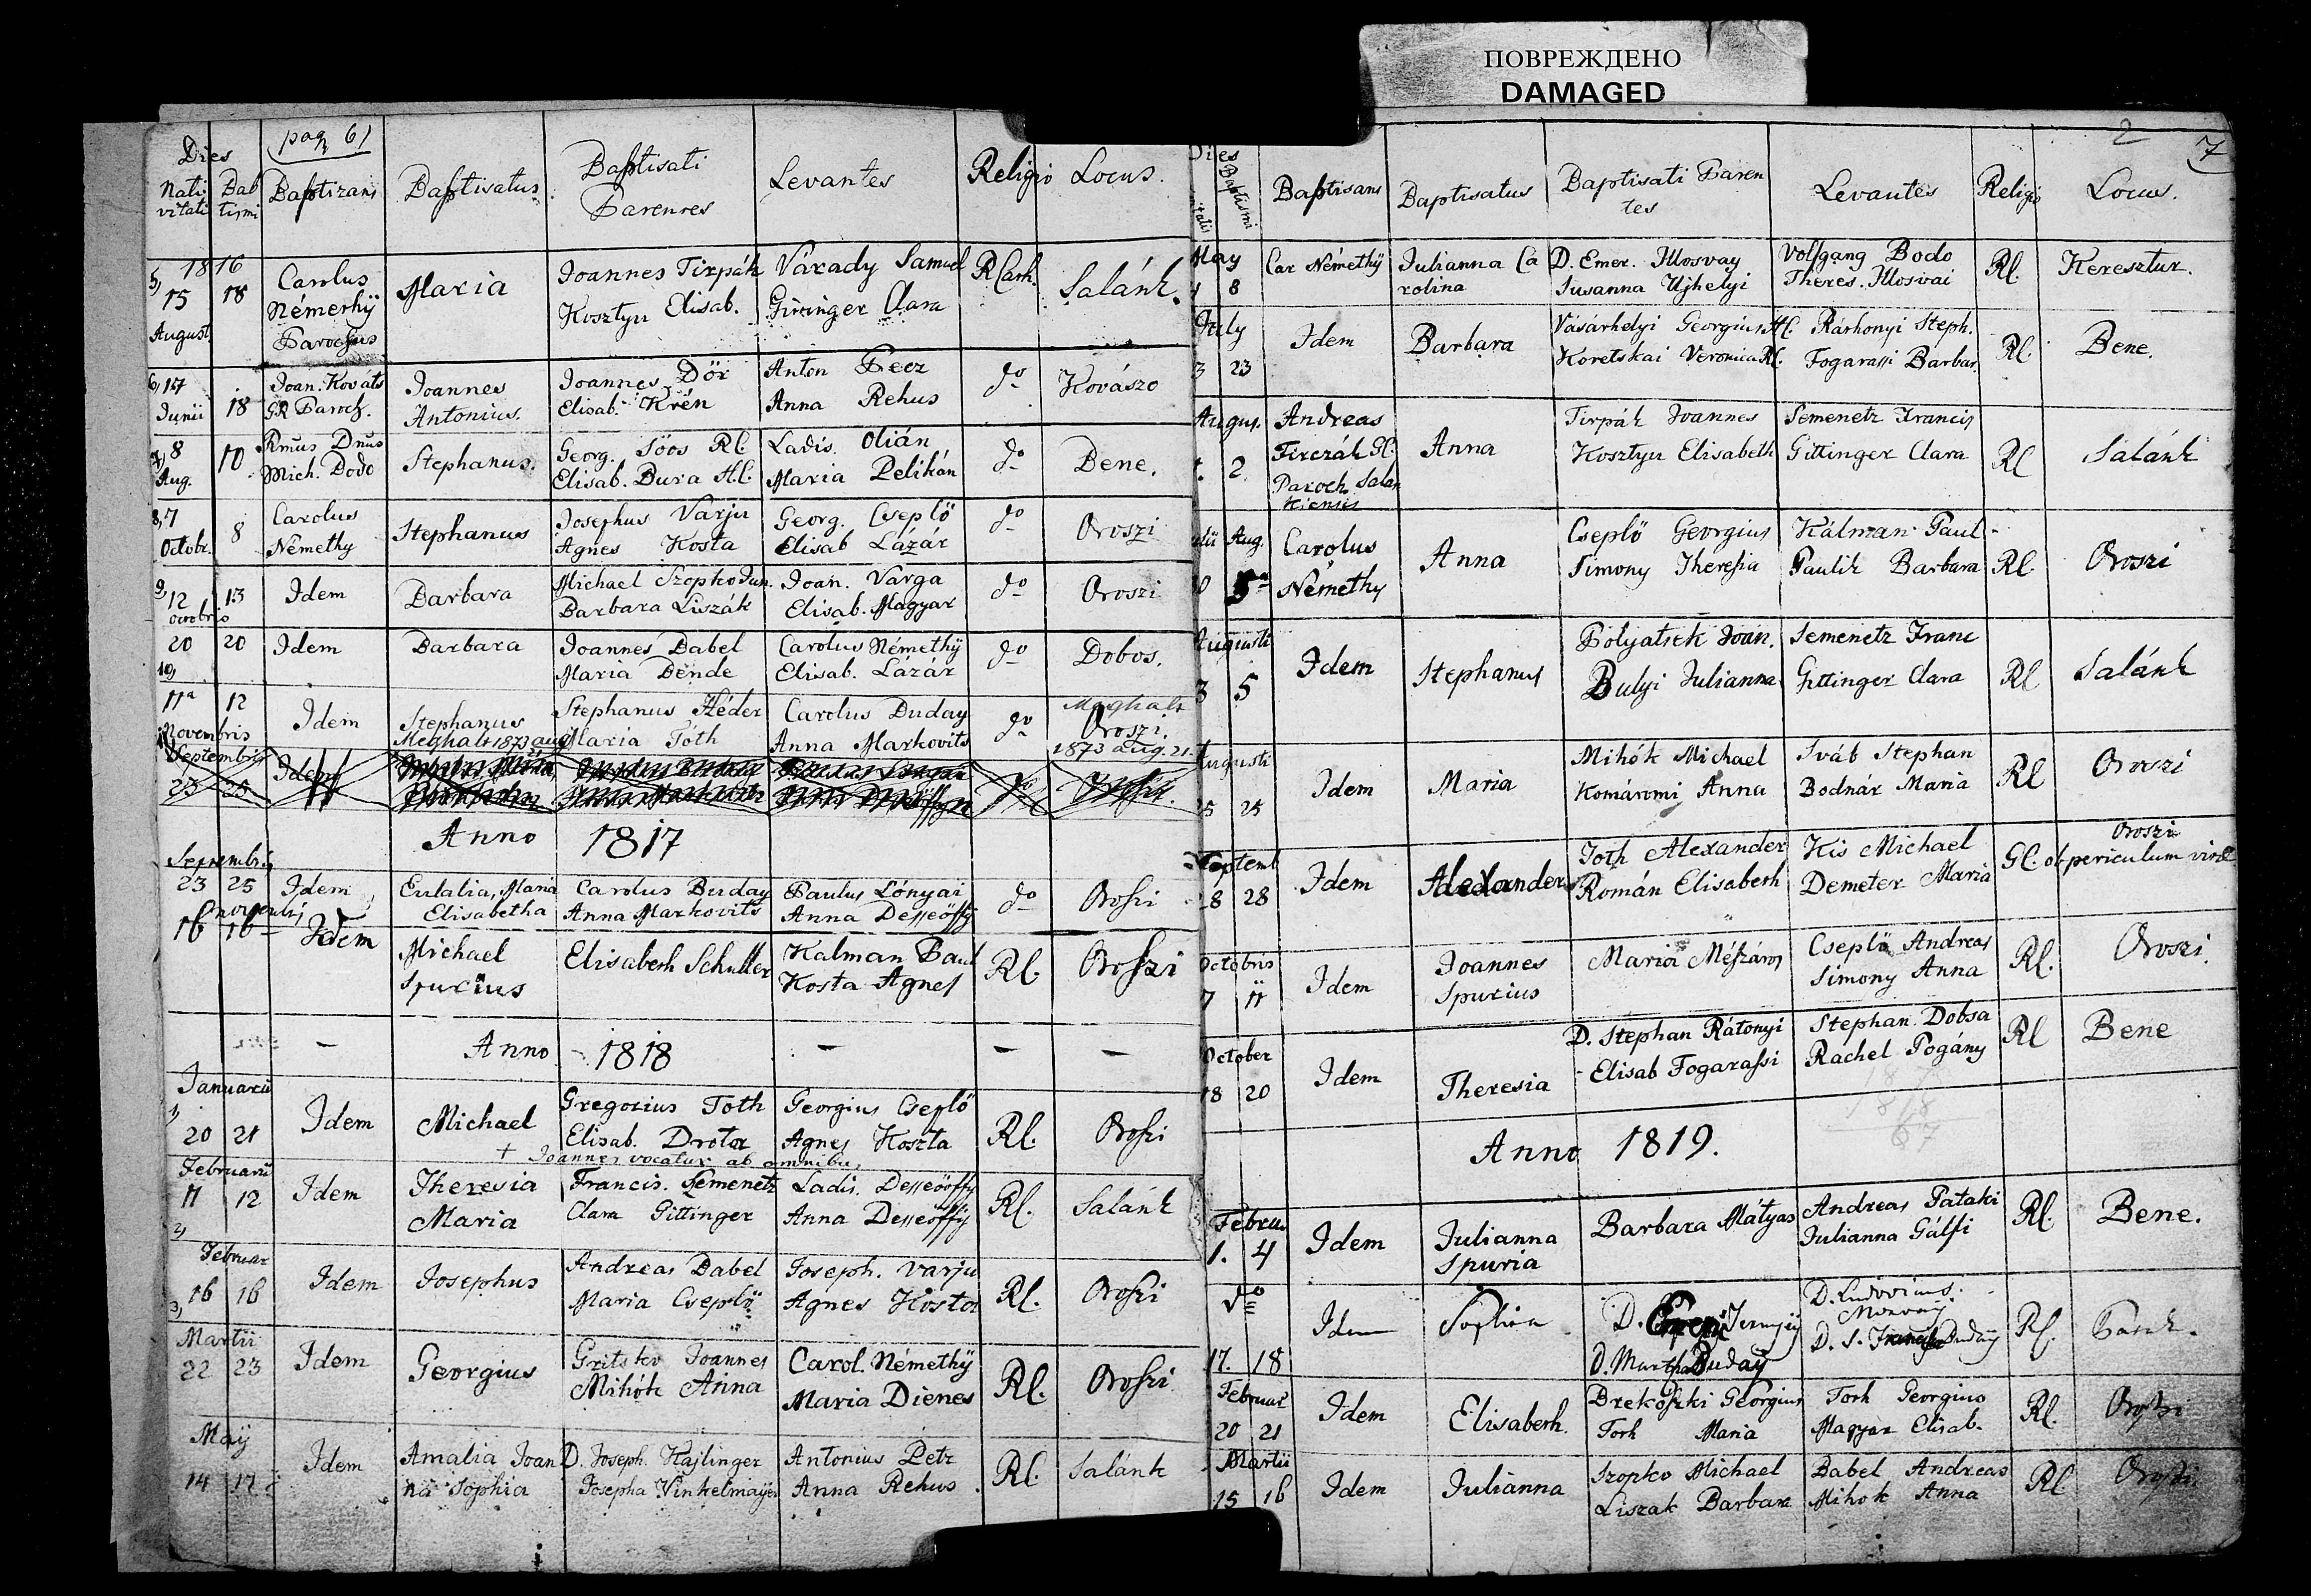 ПОВРЕЖДЕНО
DAMAGED
pag 61
Dies
Nati
vitati
Bab
tismi
Baptizans
Baptisatus
Baptisati
Parentes
Levantes
Religio
Locus.
1816
5, 15 August
18
Carolus
Némethÿ
Parochus
Maria
Joannes Tirpák
Kosztyu Elisab.
Várady Samuel
Gittinger Clara
R Cath.
Salánk.
6, 17
Junii
18
Joan. Kováts
GR Paroch.
Joannes
Antonius.
Joannes Dör
Elisab. Krén
Anton Pecz
Anna Rehus
do
Kovászo
7, 8
Aug.
10
Rmus Dnus
Mich. Dodo
Stephanus.
Georg. Söos Rl.
Elisab. Bura Hl.
Ladis. Olián
Maria Pelikán
do
Bene.
8, 7
Octobr.
8
Carolus
Némethy
Stephanus
Josephus Varju
Agnes Kosta
Georg. Cseplö
Elisab Lázár
do
Oroszi
9, 12
Octobris
13
Idem
Barbara
Michael Szopko Jun.
Barbara Liszák
Joan. Varga
Elisab. Magyar
do
Oroszi
20
10,
20
Idem
Barbara
Joannes Babel
Maria Dende
Carolus Némethÿ
Elisab. Lázár
do
Dobos.
11a
Novembris
12
Idem
Stephanus
Meghalt 1873 aug
Stephanus Héder
Maria Toth
Carolus Buday
Anna Markovits
do
Meghalt
Oroszi.
1873 aug. 21.
Septembris
23 25
Idem
Anno 1817
Septembris
23 25
Idem
Eulalia, Maria
Elisabetha
Carolus Buday
Anna Markovits
Paulus Lónyai
Anna Desseöffÿ
do
Oroszi
16 16
Idem
Michael
Spurius
Elisabeth Schuller
Kalman Paul
Kosta Agnes
Rl.
Oroszi
Anno 1818
Januarii
1,
20 21
Idem
Michael
Gregorius Toth
Elisab. Drota
Georgius Cseplö
Agnes Koszta
Rl.
Oroszi
+ Joannes vocatur ab omnibus
Februarii
11 12
2,
Idem
Theresia
Maria
Francis. Semenetz
Clara Gittinger
Ladis. Desseöffÿ
Anna Desseöffÿ
Rl.
Salánk
Februar
16 16
3,
Idem
Josephus
Andreas Babel
Maria Cseplö
Joseph. Varju
Agnes Kosta
Rl.
Oroszi
Martii
22 23
Idem
Georgius
Gritsko Joannes
Mihók Anna
Carol. Némethÿ
Maria Dienes
Rl.
Oroszi
Maÿ
14 17
Idem
Amalia Joan
na Sophia
D. Joseph. Hajlinger
Josepha Vinkelmaÿer
Antonius Petz
Anna Rehus
Rl.
Salánk
2
7
Dies
Baptismi
Baptisans
Baptisatus
Baptisati Paren
tes
Levantes
Religio
Locus.
May
8
Car Némethÿ
Julianna Ca
rolina
D. Emer. Ilosvay
Susanna Ujhelyi
Volfgang Bodo
Theres. Ilosvai
Rl.
Keresztur.
July
3 23
Idem
Barbara
Vásárhelyi Georgius Hl.
Koretskai Veronica Rl.
Ráthonyi Steph.
Fogarassi Barbar.
Rl.
Bene.
Augus.
2
Andreas
Firczák Gl.
Paroch. Salan
kiensis
Anna
Tirpák Joannes
Kosztyu Elisabeth
Semenetz Francis
Gittinger Clara
Rl
Salánk
Aug.
5a
Carolus
Némethy
Anna
Cseplö Georgius
Simony Theresia
Kálman Paul
Paulik Barbara
Rl.
Oroszi
Augusti
3 5
Idem
Stephanus
Polyatsek Joan.
Bulyi Julianna
Semenetz Franc
Gittinger Clara
Rl
Salánk
Augusti
25 25
Idem
Maria
Mihók Michael
Komáromi Anna
Sváb Stephan
Bodnár Maria
Rl
Oroszi
Septemb
28 28
Idem
Alexander
Toth Alexander
Román Elisabeth
Kis Michael
Demeter Maria
Gl. ob periculum vitæ
Oroszi
Octobris
7 11
Idem
Joannes
Spurius
Maria Mészáros
Cseplö Andreas
Simony Anna
Rl.
Oroszi.
October
18 20
Idem
Theresia
D. Stephan Rátonyi
Elisab Fogarassi
Stephan Dobsa
Rachel Pogány
Rl
Bene
1818
67
Anno 1819.
Februar
1. 4
Idem
Julianna
Spuria
Barbara Mátyas
Andreas Pataki
Julianna Gálfi
Rl.
Bene.
do
17. 18
Idem
Sophia
D. Martha Buday
D. Ludovicus
Rl.
Februar
20 21
Idem
Elisabeth.
Brekószki Georgius
Toth Maria
Toth Georgius
Magyar Elisab.
Rl.
Oroszi
Martii
15 16
Idem
Julianna
Szopko Michael
Liszak Barbara
Babel Andreas
Mihok Anna
Rl
Oroszi.